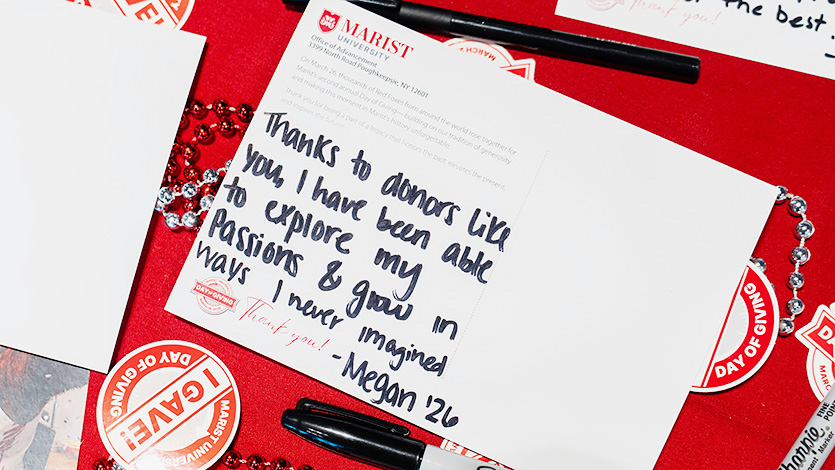 MARIST
UNIVERSITY
Office of Advancement
3399 North Road Poughkeepsie, NY 12601
On March 26, thousands of Red Foxes from around the world rose together for
Marist's second annual Day of Giving — building on our tradition of generosity
and making this moment in Marist's history unforgettable.
Thank you for being a part of a legacy that honors the past, elevates the present,
and inspires the future!
Thanks to donors like
you, I have been able
to explore my
Passions & grow in
ways I never imagined
-Megan '26
DAY OF GIVING
Thank you!
DAY OF GIVING
I GAVE!
MARIST UNIVERSITY
DAY OF GIVING
Thank you!
the best
Sharpie
FINE POINT